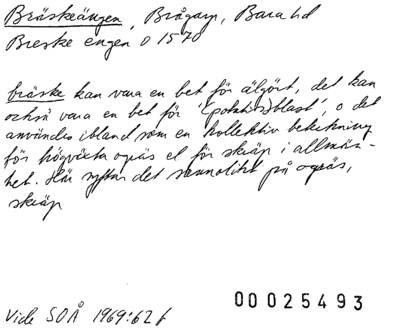 Bräskeängen, Brågarp, Bara hd
Breske engen o 1570
bräske kan vara en bet för älgört, det kan
också vara en bet för '(potatis)blast', o det
användes ibland som en kollektiv beteckning
för högväxta ogräs el för skräp i allmän-
het. Här syftar det sannolikt på ogräs,
skräp
Vide SOÅ 1969:62 f
00025493